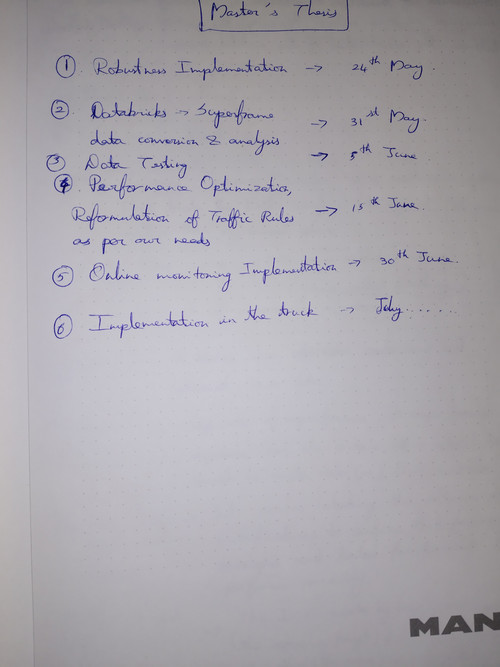 Master's Thesis
① Robustness Implementation → 24th May.
② Databricks → Superframe
data conversion & analysis → 31st May.
③ Data Testing → 5th June
④ Performance Optimization,
Reformulation of Traffic Rules → 15th June.
as per our needs
⑤ Online monitoring Implementation → 30th June.
⑥ Implementation in the truck → July......
MAN